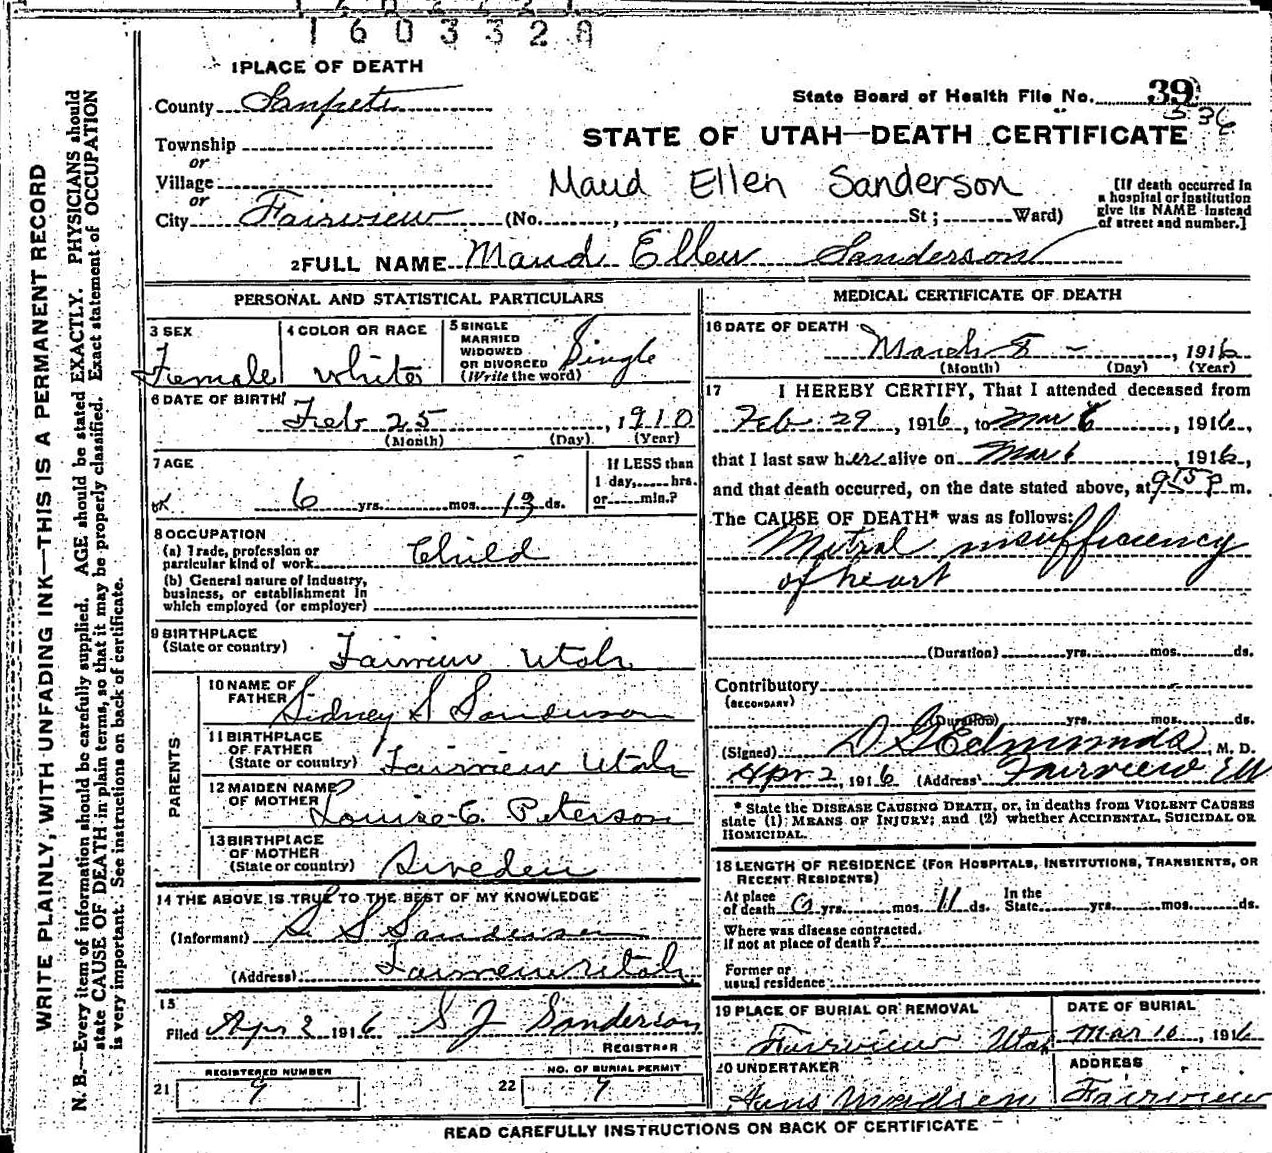 1603328
1 PLACE OF DEATH
County Sanpete
State Board of Health File No. 39
536
STATE OF UTAH—DEATH CERTIFICATE
Township
or
Village
or
City Fairview (No. , St; Ward)
Maud Ellen Sanderson
[If death occurred in
a hospital or institution
give its NAME instead
of street and number.]
2 FULL NAME Maud Ellen Sanderson
PERSONAL AND STATISTICAL PARTICULARS
3 SEX
Female
4 COLOR OR RACE
White
5 SINGLE
MARRIED
WIDOWED
OR DIVORCED
(Write the word)
Single
6 DATE OF BIRTH
Feb 25, 1910
(Month) (Day) (Year)
7 AGE
6 yrs. mos. 13 ds.
If LESS than
1 day, hrs.
or min.?
8 OCCUPATION
(a) Trade, profession or
particular kind of work Child
(b) General nature of industry,
business, or establishment in
which employed (or employer)
9 BIRTHPLACE
(State or country)
Fairview Utah
PARENTS
10 NAME OF
FATHER
Sidney S Sanderson
11 BIRTHPLACE
OF FATHER
(State or country) Fairview Utah
12 MAIDEN NAME
OF MOTHER
Louise E. Peterson
13 BIRTHPLACE
OF MOTHER
(State or country) Sweden
14 THE ABOVE IS TRUE TO THE BEST OF MY KNOWLEDGE
(Informant) S S Sanderson
(Address) Fairview Utah
15
Filed Apr 2 1916 S J Sanderson
REGISTRAR
21 REGISTERED NUMBER
9
22 NO. OF BURIAL PERMIT
9
MEDICAL CERTIFICATE OF DEATH
16 DATE OF DEATH
March 8 - , 1916
(Month) (Day) (Year)
17 I HEREBY CERTIFY, That I attended deceased from
Feb. 29, 1916, to Mar 6, 1916,
that I last saw her alive on Mar 6, 1916,
and that death occurred, on the date stated above, at 9 15 P m.
The CAUSE OF DEATH* was as follows:
Mitral insufficiency
of heart
(Duration) yrs. mos. ds.
Contributory
(SECONDARY)
(Duration) yrs. mos. ds.
(Signed) D G Edmunds, M. D.
Apr 2, 1916 (Address) Fairview
* State the DISEASE CAUSING DEATH, or, in deaths from VIOLENT CAUSES
state (1) MEANS OF INJURY; and (2) whether ACCIDENTAL, SUICIDAL OR
HOMICIDAL.
18 LENGTH OF RESIDENCE (FOR HOSPITALS, INSTITUTIONS, TRANSIENTS, OR
RECENT RESIDENTS)
At place
of death 6 yrs. mos. 11 ds.
In the
State yrs. mos. ds.
Where was disease contracted.
if not at place of death?
Former or
usual residence
19 PLACE OF BURIAL OR REMOVAL
Fairview Utah
DATE OF BURIAL
Mar 10, 1916
20 UNDERTAKER
Hans Madsen
ADDRESS
Fairview
READ CAREFULLY INSTRUCTIONS ON BACK OF CERTIFICATE
WRITE PLAINLY, WITH UNFADING INK—THIS IS A PERMANENT RECORD
N. B.—Every item of information should be carefully supplied. AGE should be stated EXACTLY. PHYSICIANS should
state CAUSE OF DEATH in plain terms, so that it may be properly classified. Exact statement of OCCUPATION
is very important. See instructions on back of certificate.